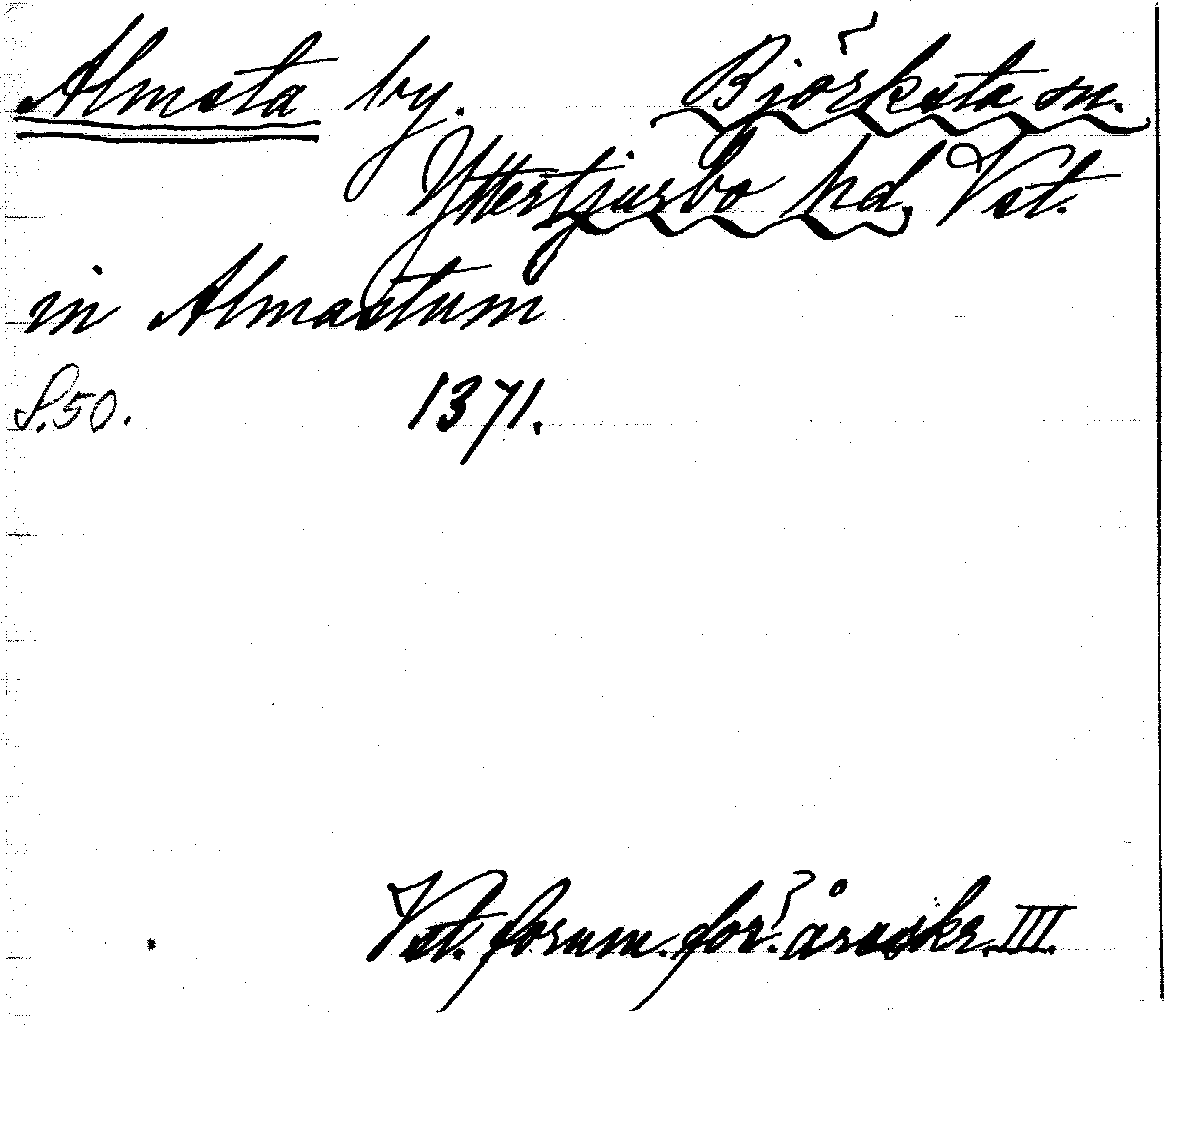 Almsta by. Björksta sn.
Yttertjurbo hd, Vst.
in Almastum
S. 50. 1371.
Vst. fornm. för:s årsskr. III.